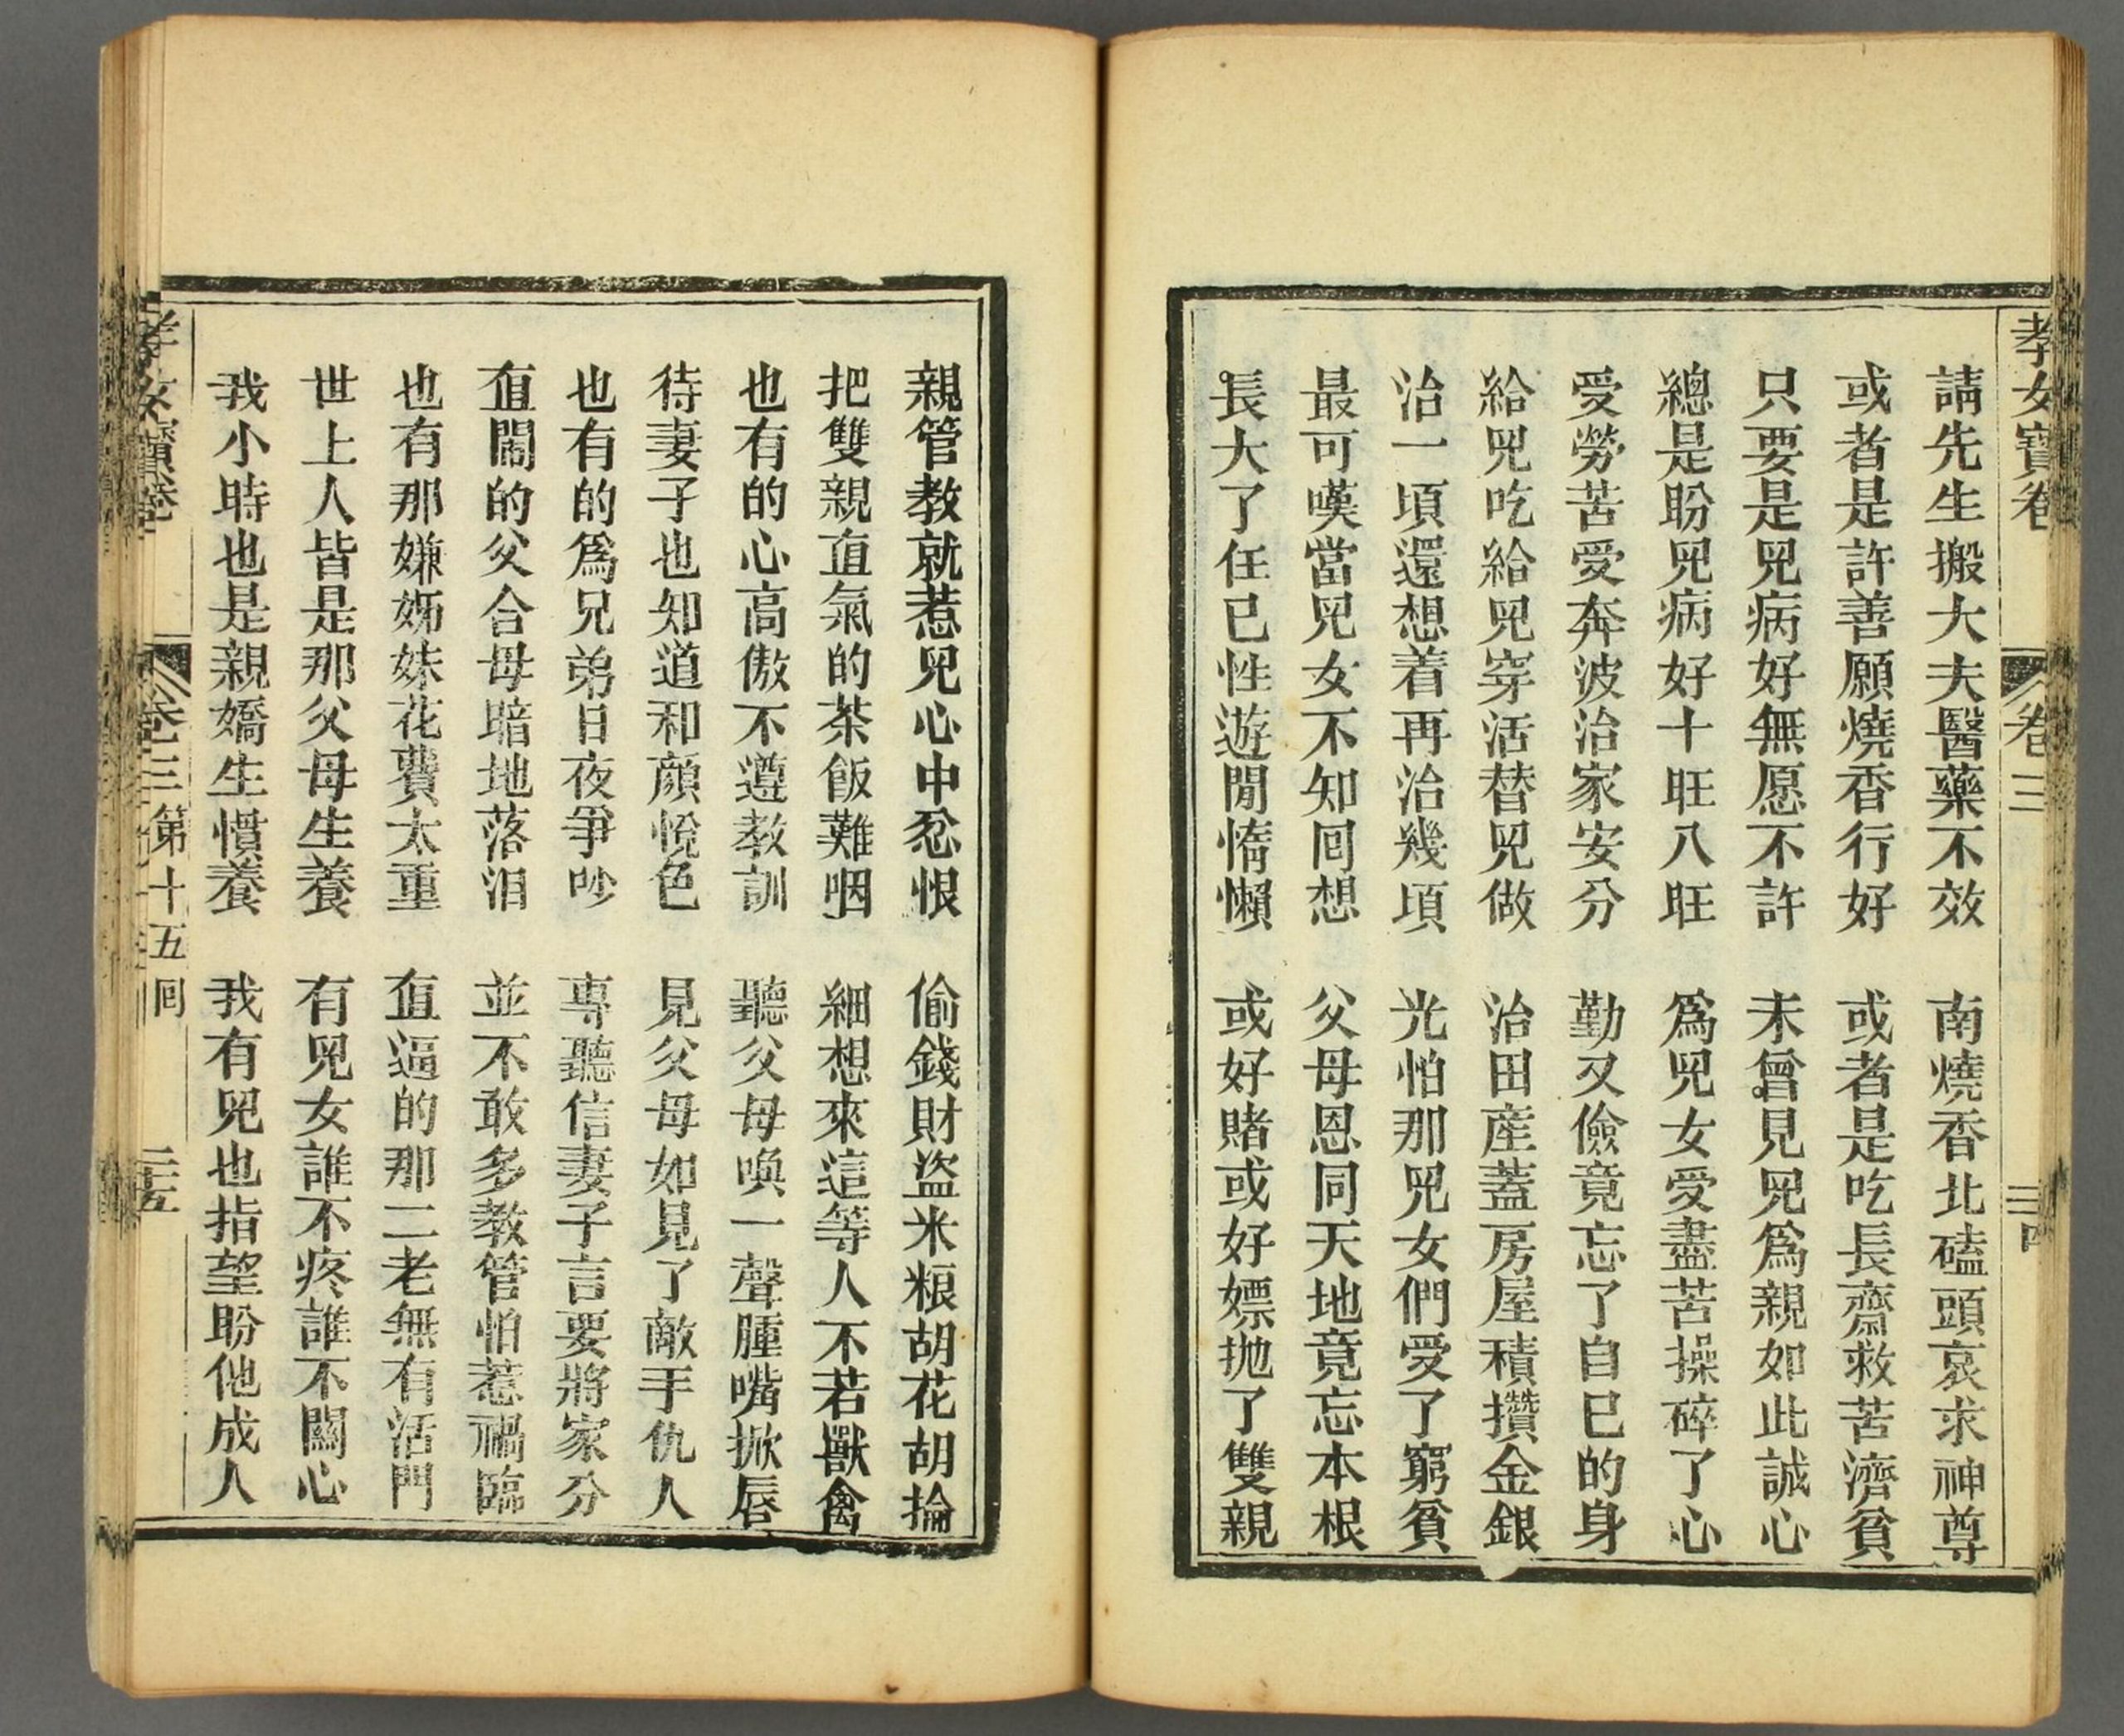 孝女寶卷 卷三
請先生搬大夫醫藥不效 南燒香北磕頭哀求神尊
或者是許善願燒香行好 或者是吃長齋救苦濟貧
只要是兒病好無愿不許 未曾見兒爲親如此誠心
總是盼兒病好十旺八旺 爲兒女受盡苦操碎了心
受勞苦受奔波治家安分 勤又儉竟忘了自已的身
給兒吃給兒穿活替兒做 治田産蓋房屋積攢金銀
治一頃還想着再治幾頃 光怕那兒女們受了窮貧
最可嘆當兒女不知囘想 父母恩同天地竟忘本根
長大了任已性遊閒惰懶 或好賭或好嫖抛了雙親
親管教就惹兒心中忿恨 偷錢財盜米粮胡花胡掄
把雙親直氣的茶飯難咽 細想來這等人不若獸禽
也有的心高傲不遵教訓 聽父母喚一聲腫嘴掀唇
待妻子也知道和顔悅色 見父母如見了敵手仇人
也有的爲兄弟日夜爭吵 專聽信妻子言要將家分
直鬧的父合母暗地落泪 並不敢多教管怕惹禍臨
也有那嫌姊妹花費太重 直逼的那二老無有活門
世上人皆是那父母生養 有兒女誰不疼誰不關心
我小時也是親嬌生慣養 我有兒也指望盼他成人
孝女寶卷 卷三 第十五囘 三五